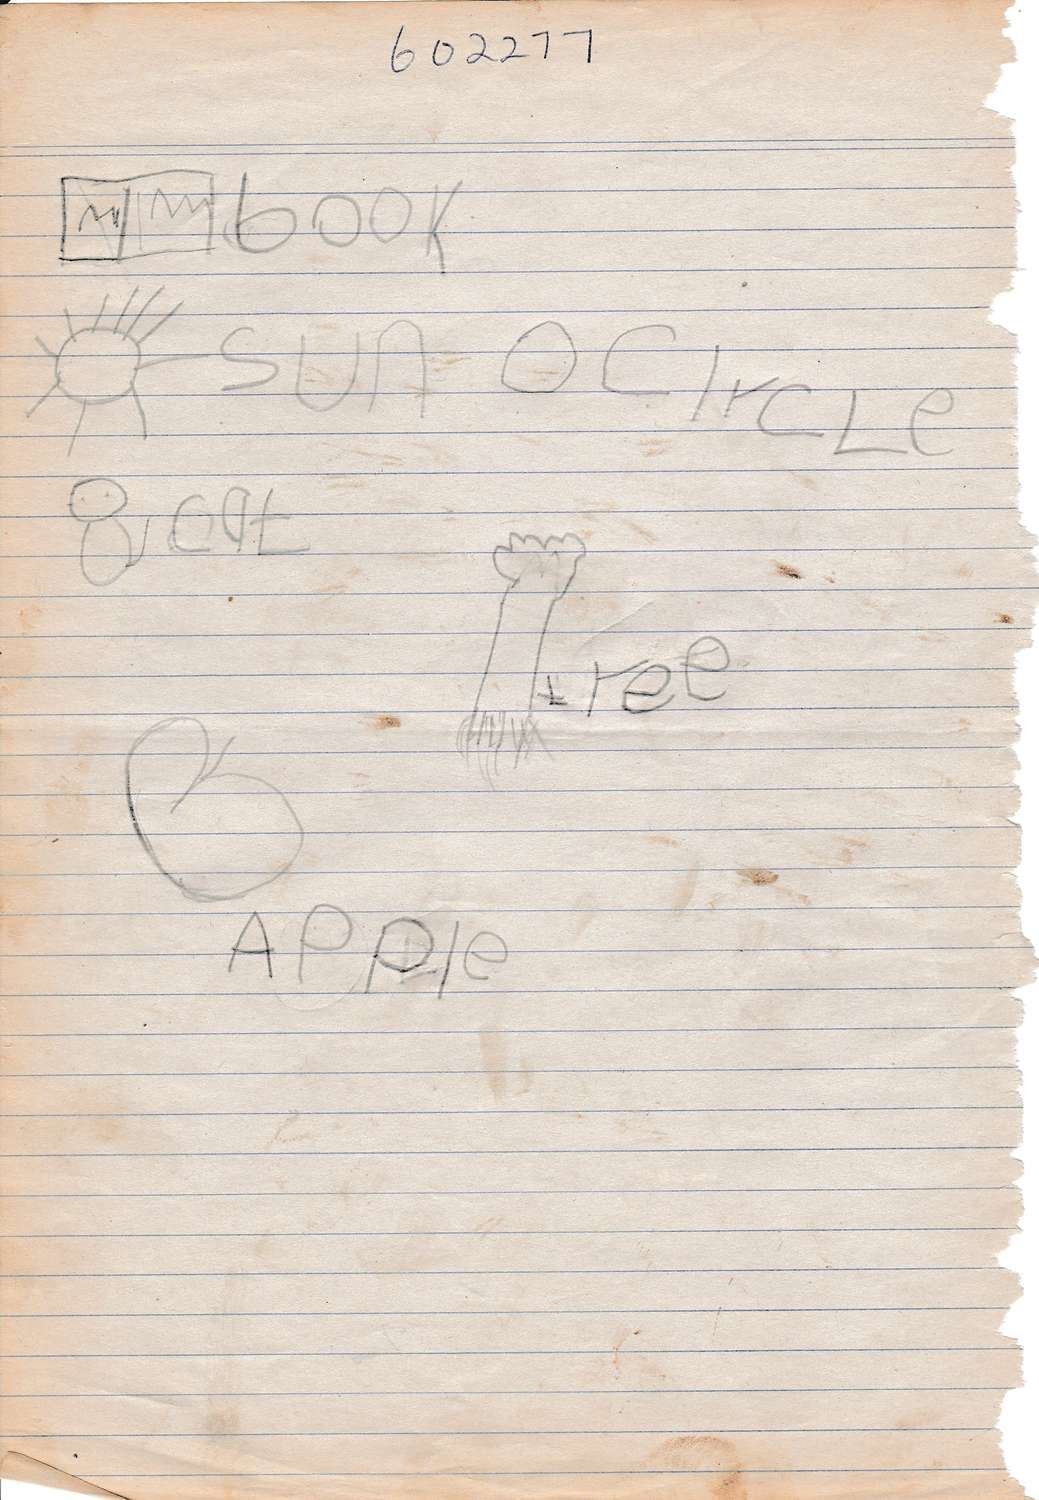 602277
book
SUn CIrcLe
cat
tree
APple